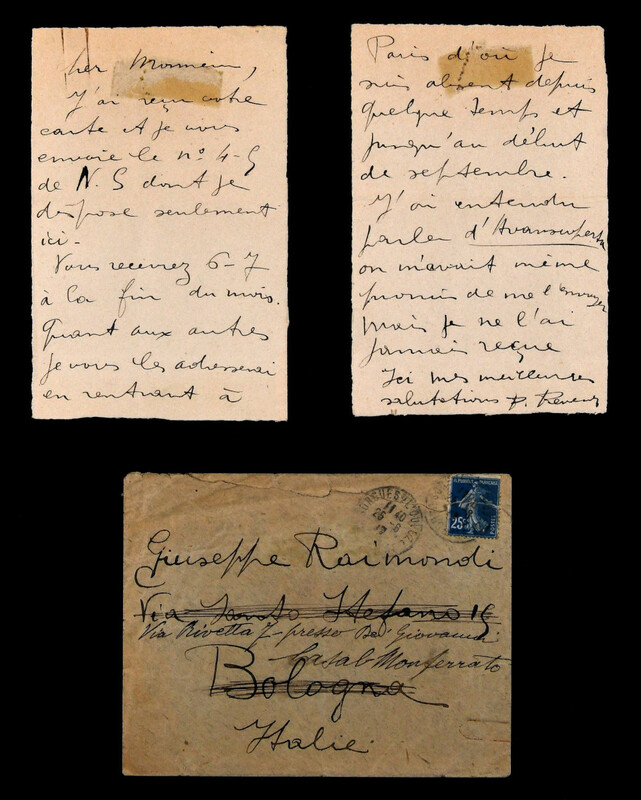 her Monsieur,
J'ai reçu votre
carte et je vous
envoie le n° 4-5
de N.S dont je
dispose seulement
ici.
Vous recevrez 6-7
à la fin du mois.
Quant aux autres
je vous les adresserai
en rentrant à
Paris d'où je
suis absent depuis
quelque temps et
jusqu'au début
de septembre.
J'ai entendu
parler d'Avanscoperta
on m'avait même
promis de me l'envoyer
mais je ne l'ai
jamais reçue
Ici mes meilleures
salutations P. Reverdy
RÉPUBLIQUE FRANÇAISE
25c
POSTES
11 40
26
Giuseppe Raimondi
Via Santo Stefano 15
Via Rivetta 7 - presso De Giovanni
Casal-Monferrato
Bologna
Italie